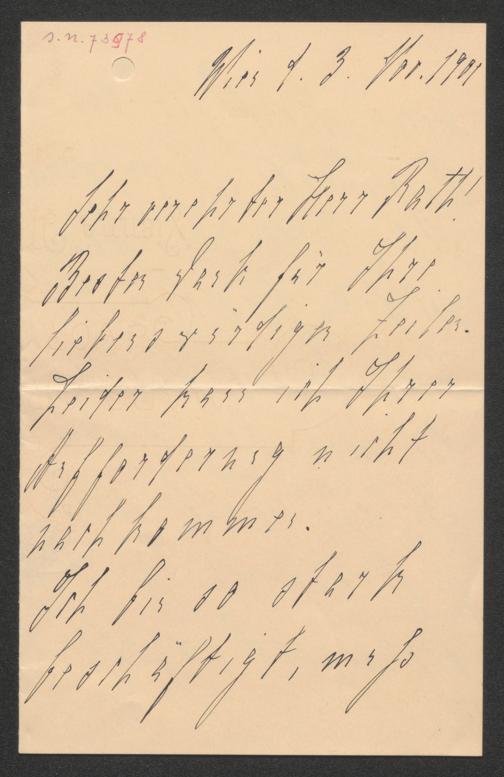 J.N. 73978
Wien d. 3. Nov. 1901
Sehr verehrter Herr Rath!
Besten Dank für Ihre
liebenswürdigen Zeilen.
Leider kann ich Ihrer
Aufforderung nicht
nachkommen.
Ich bin so stark
beschäftigt, muß